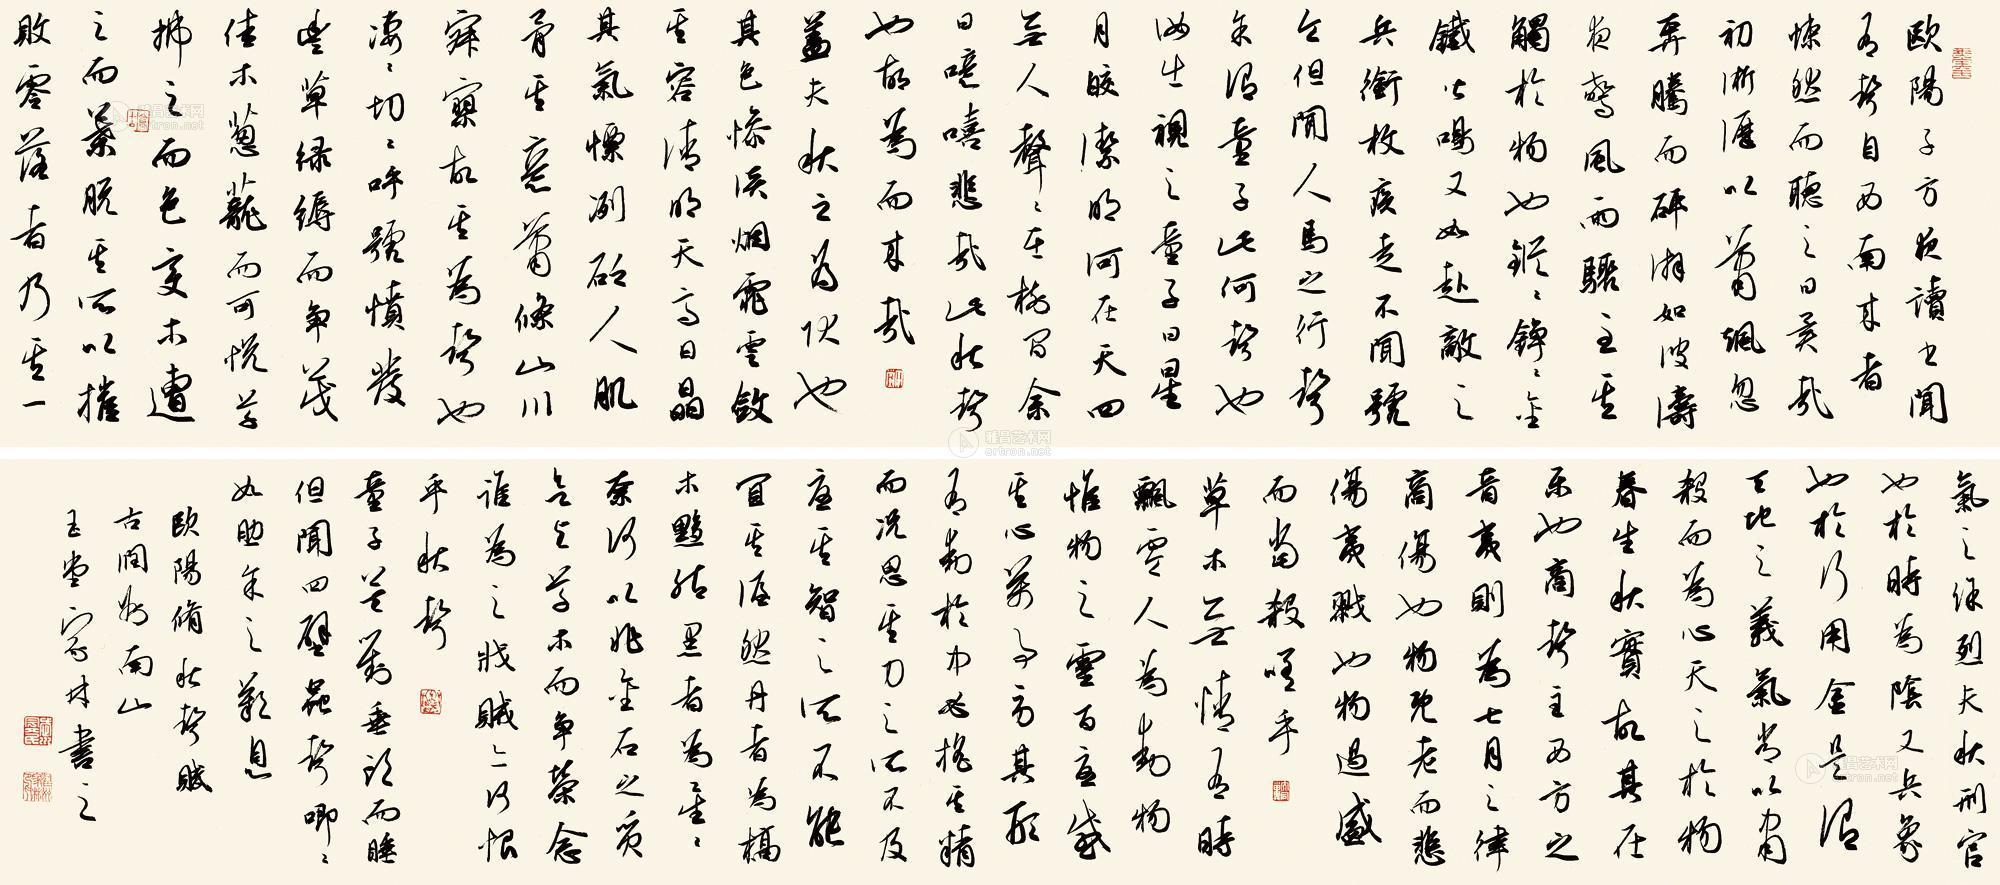 歐陽子方夜讀書聞
有聲自西南來者
悚然而聽之曰異哉
初淅瀝以蕭颯忽
奔騰而砰湃如波濤
夜驚風雨驟至其
觸於物也鏦〻錚〻金
鐵皆鳴又如赴敵之
兵銜枚疾走不聞號
令但聞人馬之行聲
余謂童子此何聲也
汝出視之童子曰星
月皎潔明河在天四
無人聲〻在樹間余
曰噫嘻悲哉此秋聲
也胡為而來哉
蓋夫秋之為狀也
其色慘淡烟霏雲斂
其容清明天高日晶
其氣慄冽砭人肌
骨其意蕭條山川
寂寥故其為聲也
淒〻切〻呼號憤發
豐草綠縟而爭茂
佳木蔥蘢而可悅草
拂之而色變木遭
之而葉脫其所以摧
敗零落者乃其一
氣之餘烈夫秋刑官
也於時為陰又兵象
也於行用金是謂
天地之義氣常以肅
殺而為心天之於物
春生秋實故其在
樂也商聲主西方之
音夷則為七月之律
商傷也物既老而悲
傷夷戮也物過盛
而當殺嗟乎
草木無情有時
飄零人為動物
惟物之靈百憂感
其心萬事勞其形
有動於中必搖其精
而況思其力之所不及
憂其智之所不能
宜其渥然丹者為槁
木黟然黑者為星〻
奈何以非金石之質
欲與草木而爭榮念
誰為之戕賊亦何恨
乎秋聲
童子莫對垂頭而睡
但聞四壁蟲聲唧〻
如助余之歎息
歐陽脩秋聲賦
古潤州南山
玉堂家林書之
雅昌艺术网
artron.net